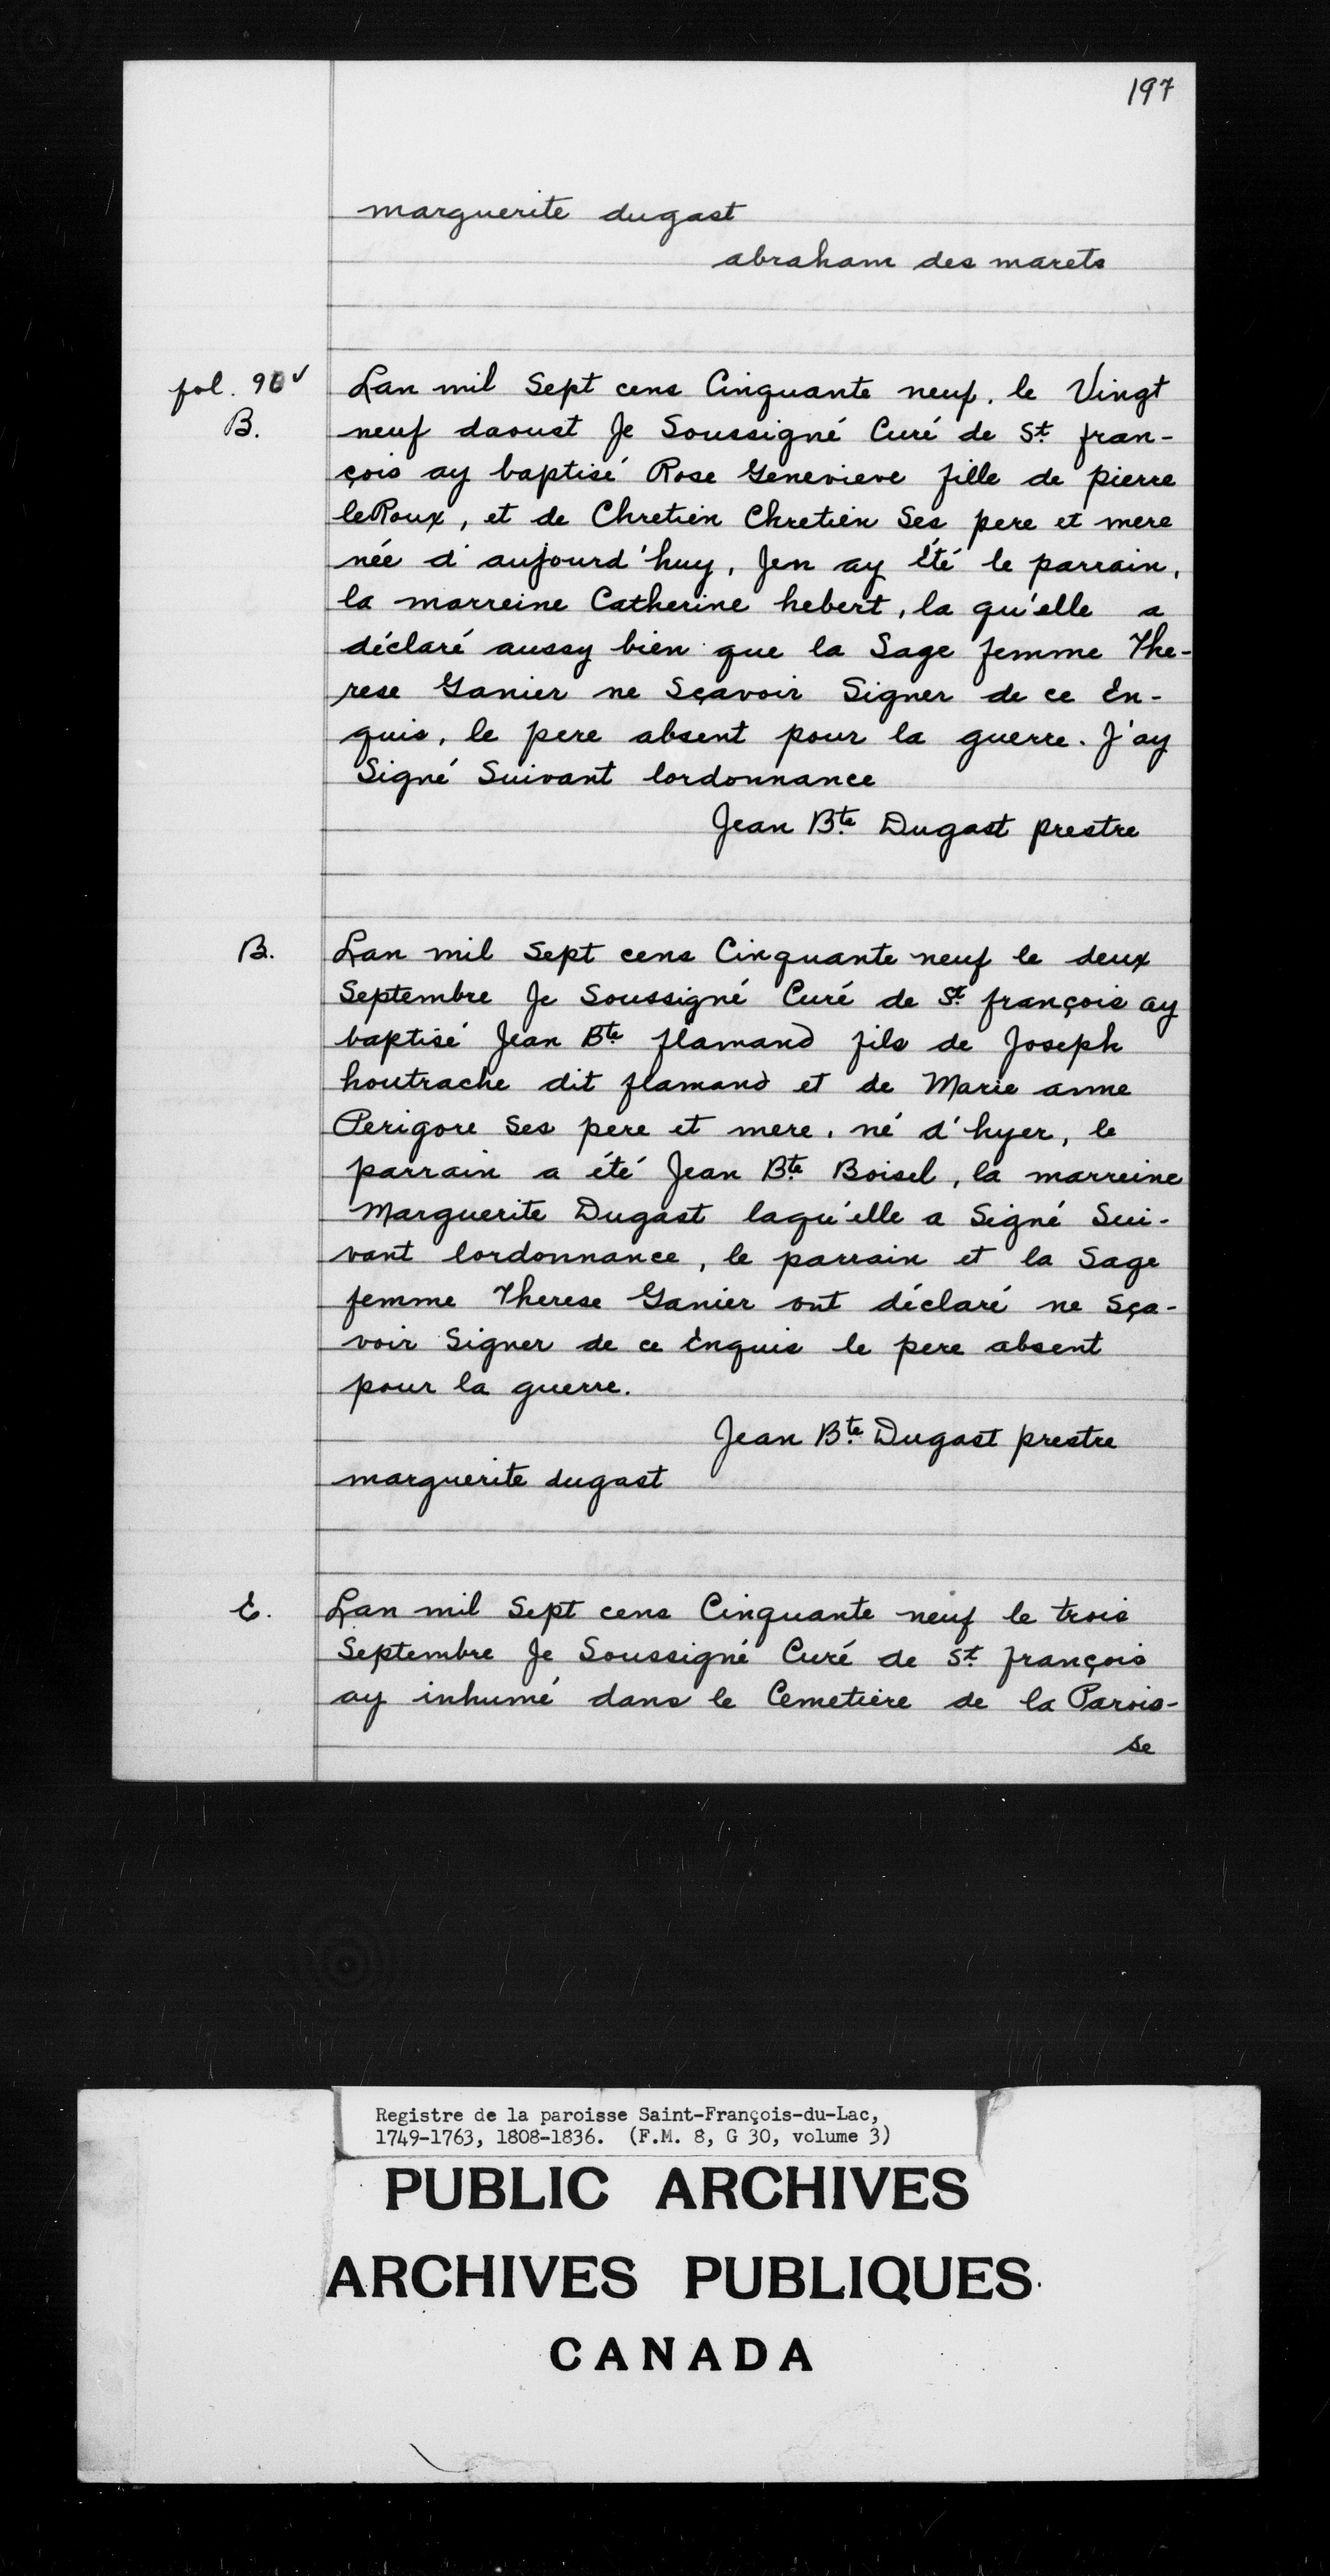 197
marguerite dugast
abraham des marets
fol. 90v
B.
Lan mil Sept cens Cinquante neuf, le Vingt
neuf daoust Je Soussigné Curé de St. fran-
çois ay baptisé Rose Genevieve fille de pierre
leRoux, et de Chretien Chretien Ses pere et mere
née d'aujourd'huy, Jen ay été le parrain,
la marreine Catherine hebert, la qu'elle a
déclaré aussy bien que la Sage femme The-
rese Ganier ne Sçavoir Signer de ce En-
quis, le pere absent pour la guerre. J'ay
Signé Suivant lordonnance
Jean Bte. Dugast prestre
B.
Lan mil Sept cens Cinquante neuf le deux
Septembre Je Soussigné Curé de St. françois ay
baptisé Jean Bte. flamand fils de Joseph
houtrache dit flamand et de Marie anne
Perigore Ses pere et mere, né d'hyer, le
parrain a été Jean Bte. Boisel, la marreine
Marguerite Dugast laqu'elle a Signé Sui-
vant lordonnance, le parrain et la Sage
femme Therese Ganier ont déclaré ne Sça-
voir Signer de ce Enquis le pere absent
pour la guerre.
Jean Bte. Dugast prestre
marguerite dugast
E.
Lan mil Sept cens Cinquante neuf le trois
Septembre Je Soussigné Curé de St. françois
ay inhumé dans le Cemetière de la Parois-
se
Registre de la paroisse Saint-François-du-Lac,
1749-1763, 1808-1836. (F.M. 8, G 30, volume 3)
PUBLIC ARCHIVES
ARCHIVES PUBLIQUES
CANADA